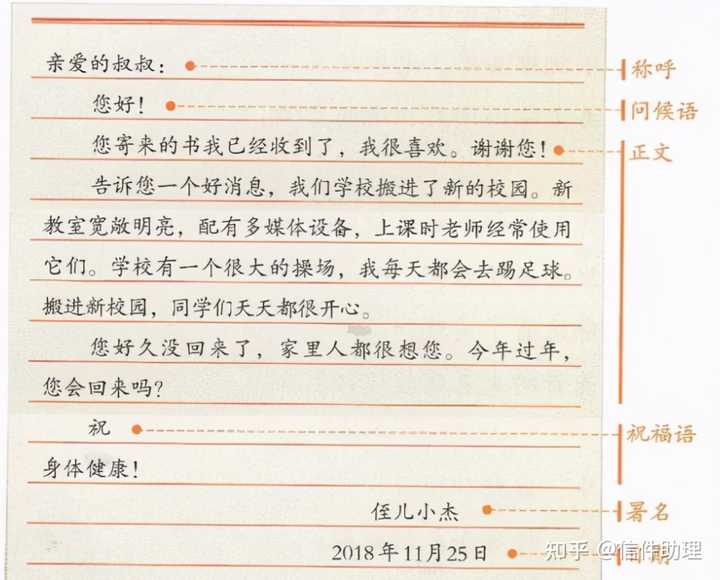 亲爱的叔叔：
称呼
您好！
问候语
您寄来的书我已经收到了，我很喜欢。谢谢您！
正文
告诉您一个好消息，我们学校搬进了新的校园。新
教室宽敞明亮，配有多媒体设备，上课时老师经常使用
它们。学校有一个很大的操场，我每天都会去踢足球。
搬进新校园，同学们天天都很开心。
您好久没回来了，家里人都很想您。今年过年，
您会回来吗？
祝
祝福语
身体健康！
侄儿小杰
署名
2018年11月25日
日期
知乎 @信件助理